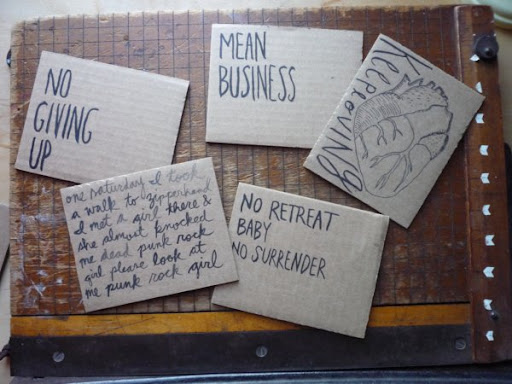 NO
GIVING
UP
MEAN
BUSINESS
KEEP LOVING
one saturday I took
a walk to zipperhead
I met a girl there &
she almost knocked
me dead punk rock
girl please look at
me punk rock girl
NO RETREAT
BABY
NO SURRENDER